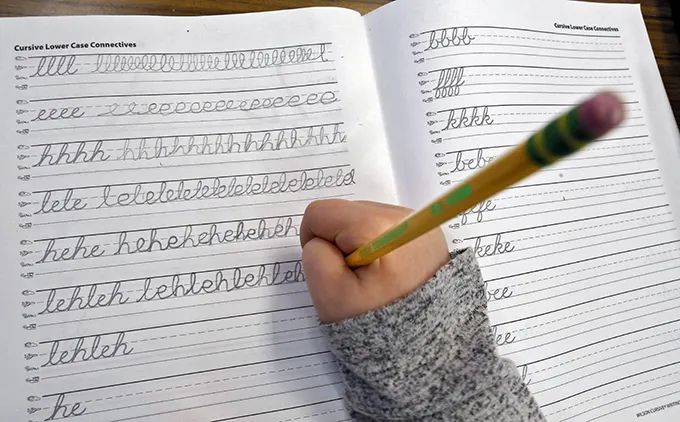 Cursive Lower Case Connectives
llll llllllllllllllllllllllllllllll
eeee eeeeeeeeeeeeeee
hhhh hhhhhhhhhhhhhhh
lele lelelelelelelelelelele
hehe hehehehehehehehe
lehleh lehlehlehlehleh
lehleh
he
Cursive Lower Case Connectives
bbbb
ffff
kkkk
bebe
fefe
keke
WILSON CURSIVE WRITING